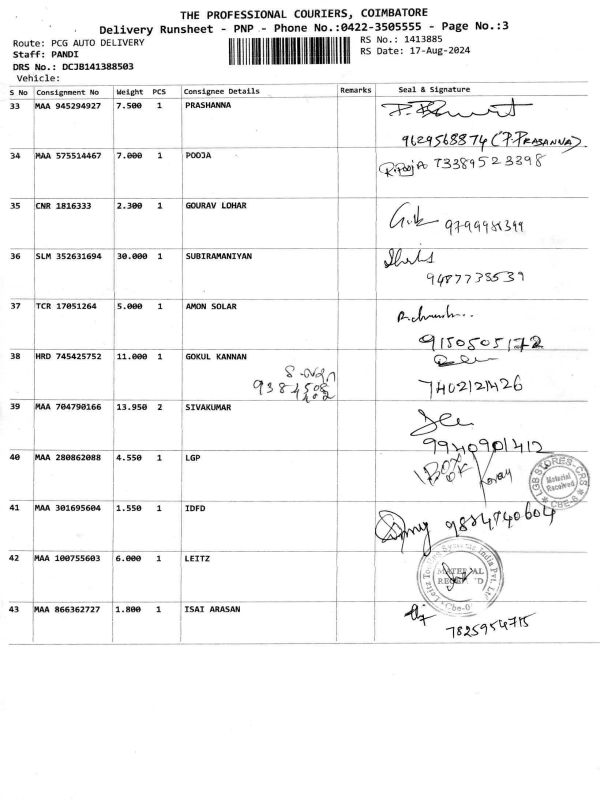 THE PROFESSIONAL COURIERS, COIMBATORE
Delivery Runsheet - PNP - Phone No.:0422-3505555 - Page No.:3
Route: PCG AUTO DELIVERY
RS No.: 1413885
Staff: PANDI
RS Date: 17-Aug-2024
DRS No.: DCJB141388503
Vehicle:
S No Consignment No Weight PCS Consignee Details Remarks Seal & Signature
33 MAA 945294927 7.500 1 PRASHANNA
9629568874 (P.PRASANNA)
34 MAA 575514467 7.000 1 POOJA
R.Pooja 7338952 3398
35 CNR 1816333 2.300 1 GOURAV LOHAR
36 SLM 352631694 30.000 1 SUBIRAMANIYAN
9487735539
37 TCR 17051264 5.000 1 AMON SOLAR
9150505172
38 HRD 745425752 11.000 1 GOKUL KANNAN
7402121426
39 MAA 704790166 13.950 2 SIVAKUMAR
9940901412
40 MAA 280862088 4.550 1 LGP
LGB STORES-CRS
Material
Received
CBE-6
41 MAA 301695604 1.550 1 IDFD
42 MAA 100755603 6.000 1 LEITZ
Leitz Tooling Systems India Pvt. Ltd
MATERIAL
RECEIVED
43 MAA 866362727 1.800 1 ISAI ARASAN
7825954715